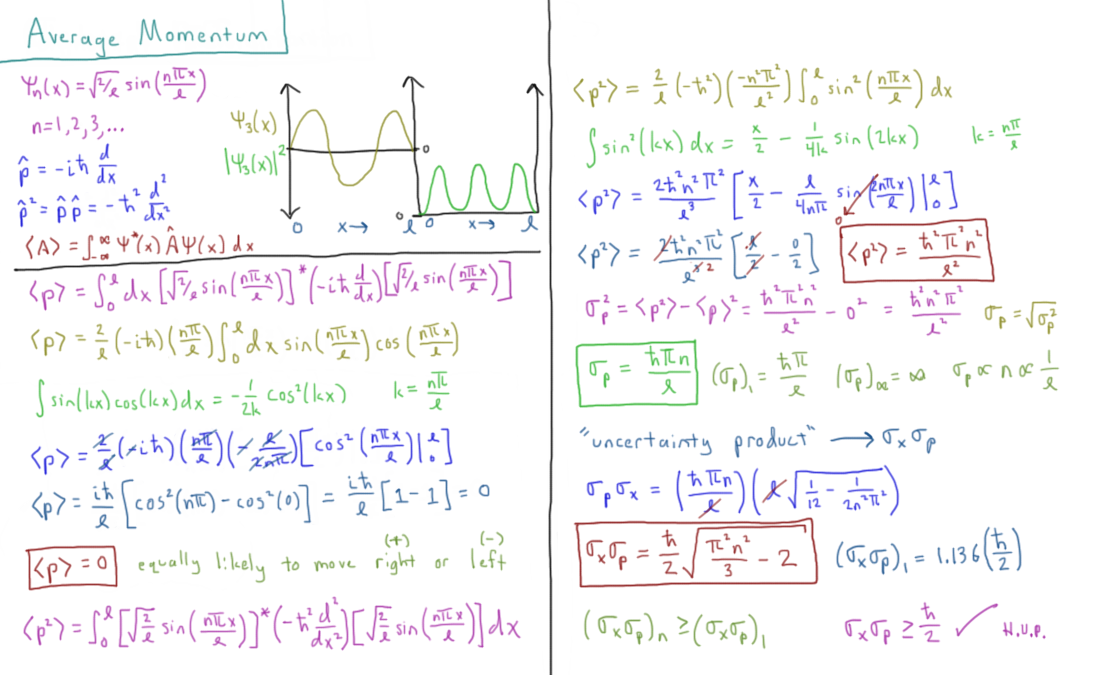 Average Momentum
Ψₙ(x) = √2/ℓ sin(nπx/ℓ)
n=1,2,3,...
p̂ = -iħ d/dx
p̂² = p̂p̂ = -ħ² d²/dx²
⟨A⟩ = ∫_{-∞}^{∞} Ψ*(x) Â Ψ(x) dx
Ψ₃(x)
|Ψ₃(x)|²
0
0
0 x→ ℓ
0 x→ ℓ
⟨p⟩ = ∫₀^ℓ dx [√2/ℓ sin(nπx/ℓ)]* (-iħ d/dx) [√2/ℓ sin(nπx/ℓ)]
⟨p⟩ = 2/ℓ (-iħ) (nπ/ℓ) ∫₀^ℓ dx sin(nπx/ℓ) cos(nπx/ℓ)
∫ sin(kx) cos(kx) dx = -1/2k cos²(kx) k = nπ/ℓ
⟨p⟩ = 2/ℓ (-iħ) (nπ/ℓ) (-ℓ/2nπ) [cos²(nπx/ℓ)|₀^ℓ]
⟨p⟩ = iħ/ℓ [cos²(nπ) - cos²(0)] = iħ/ℓ [1-1] = 0
⟨p⟩ = 0 equally likely to move right (+) or left (-)
⟨p²⟩ = ∫₀^ℓ [√2/ℓ sin(nπx/ℓ)]* (-ħ² d²/dx²) [√2/ℓ sin(nπx/ℓ)] dx
⟨p²⟩ = 2/ℓ (-ħ²) (-n²π²/ℓ²) ∫₀^ℓ sin²(nπx/ℓ) dx
∫ sin²(kx) dx = x/2 - 1/4k sin(2kx) k = nπ/ℓ
⟨p²⟩ = 2ħ²n²π²/ℓ³ [x/2 - ℓ/4nπ sin(2nπx/ℓ)|₀^ℓ]
0
⟨p²⟩ = 2ħ²n²π²/ℓ³ ² [ℓ/2 - 0/2] ⟨p²⟩ = ħ²π²n²/ℓ²
σₚ² = ⟨p²⟩ - ⟨p⟩² = ħ²π²n²/ℓ² - 0² = ħ²n²π²/ℓ² σₚ = √σₚ²
σₚ = ħπn/ℓ (σₚ)₁ = ħπ/ℓ (σₚ)∞ = ∞ σₚ ∝ n ∝ 1/ℓ
"uncertainty product" → σₓσₚ
σₚσₓ = (ħπn/ℓ) (ℓ √(1/12 - 1/2n²π²))
σₓσₚ = ħ/2 √(π²n²/3 - 2) (σₓσₚ)₁ = 1.136 (ħ/2)
(σₓσₚ)ₙ ≥ (σₓσₚ)₁ σₓσₚ ≥ ħ/2 ✓ H.U.P.